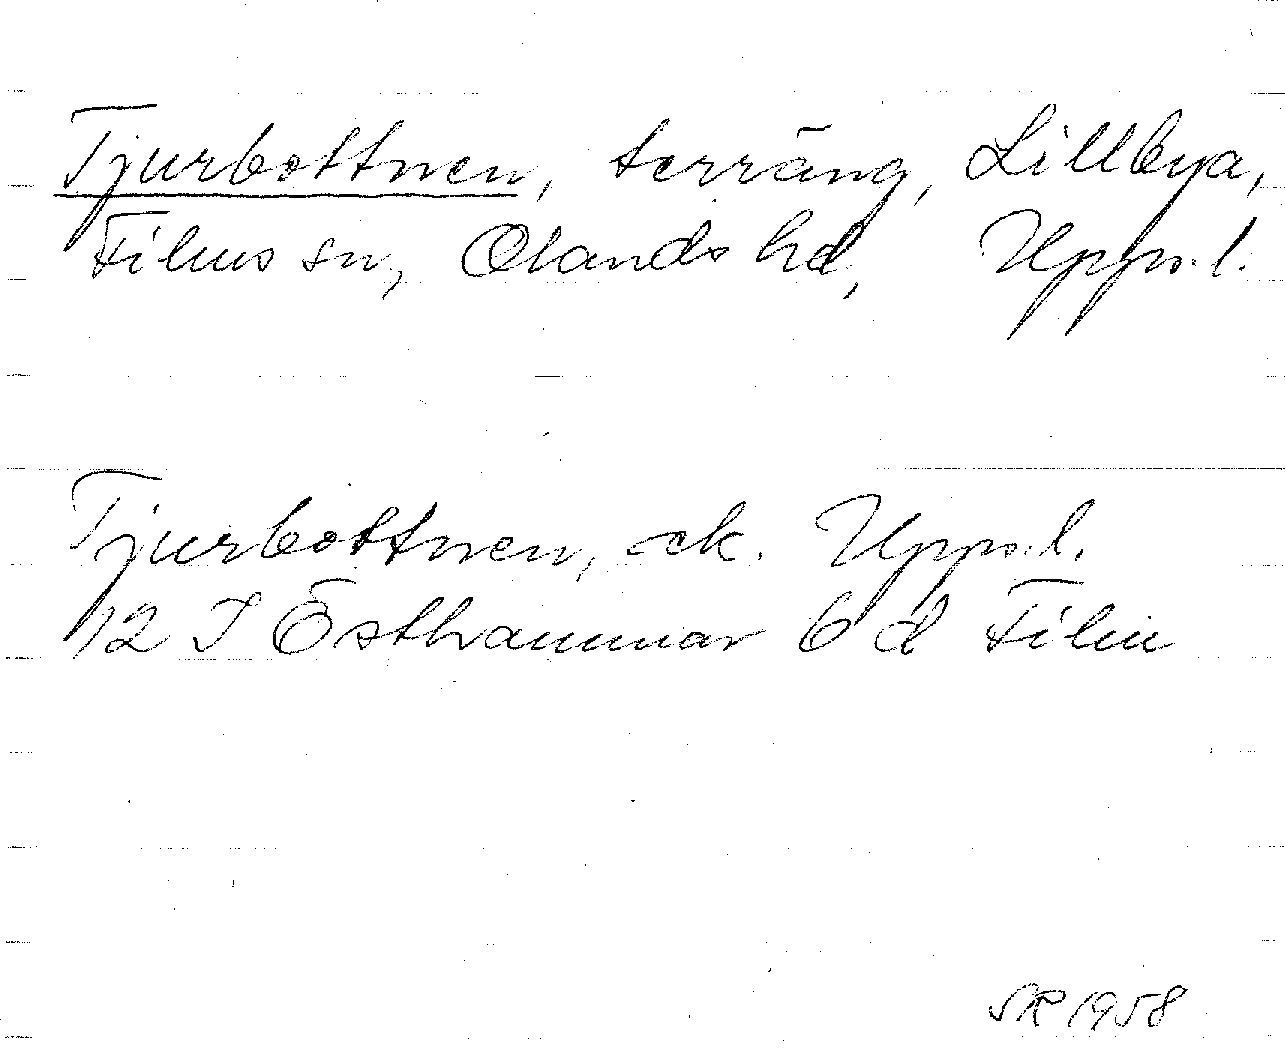 Tjurbottnen, terräng, Lillbya,
Films sn, Olands hd, Upps. l.
Tjurbottnen, ek. Upps. l.
12 I Östhammar 6 d Film
SR 1958